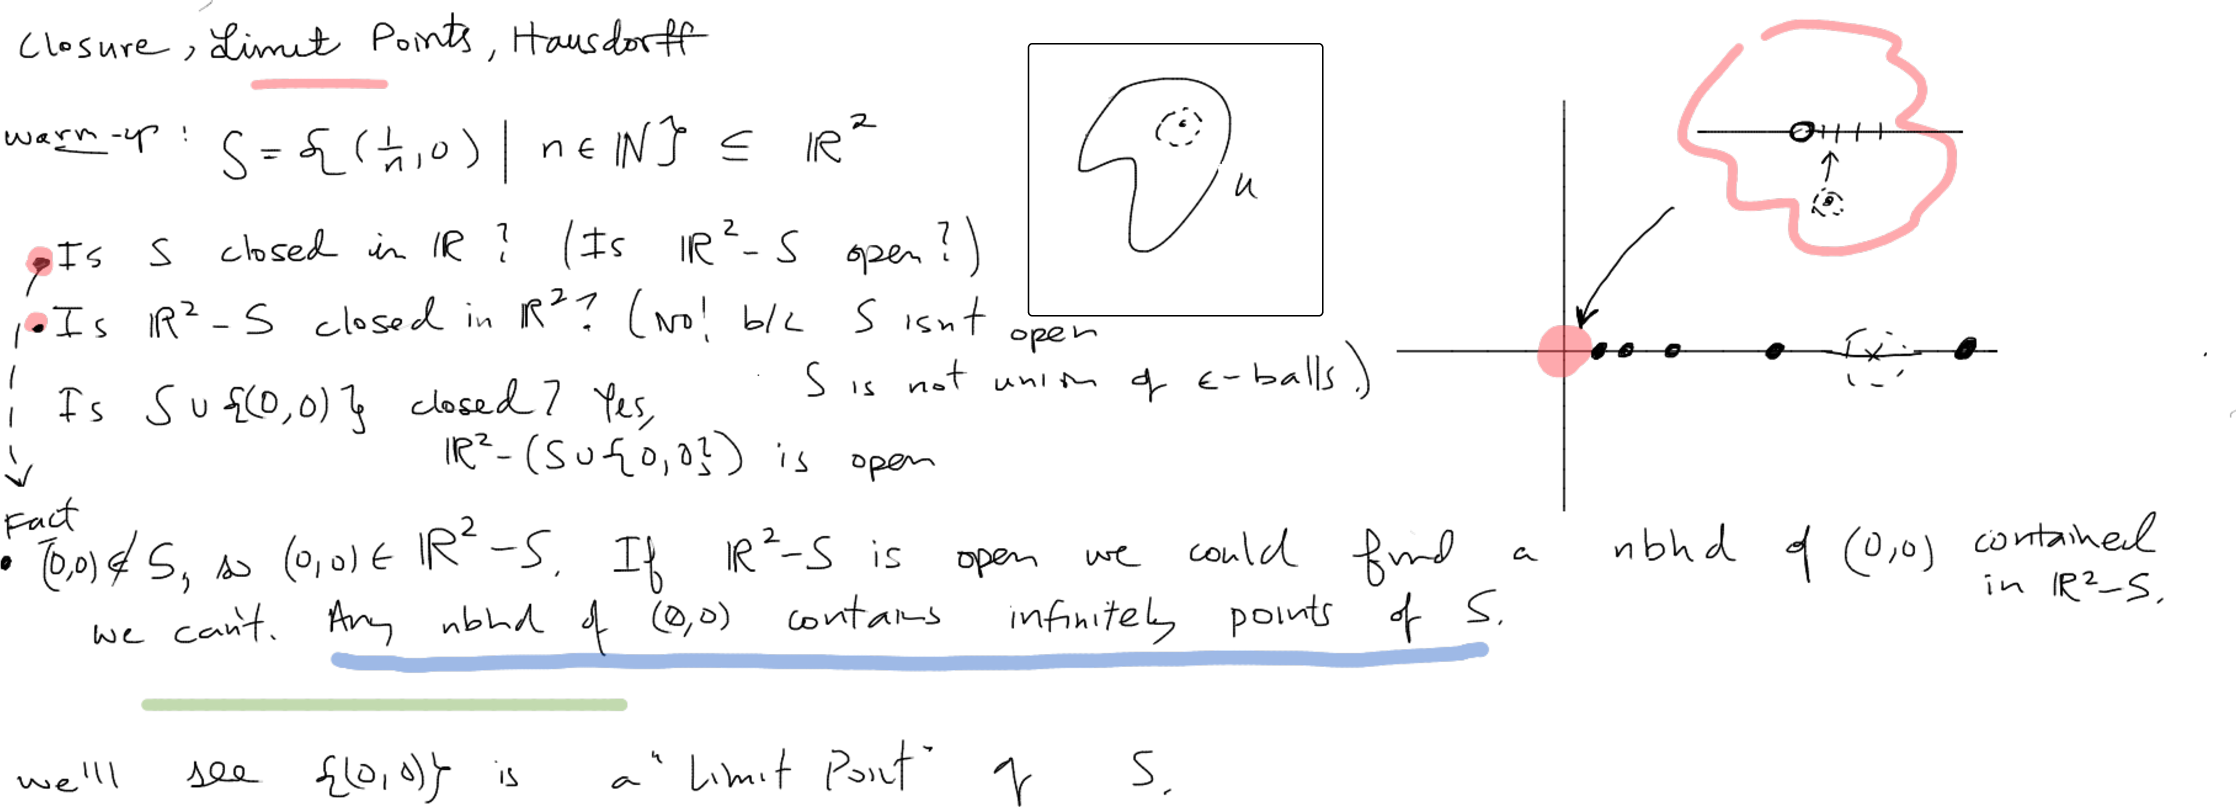 Closure, Limit Points, Hausdorff
warm-up: S = {(1/n, 0) | n ∈ ℕ} ⊆ ℝ²
• Is S closed in ℝ? (Is ℝ² - S open?)
• Is ℝ² - S closed in ℝ²? (No! b/c S isnt open
S is not union of ϵ-balls.)
Is S ∪ {(0,0)} closed? Yes,
ℝ² - (S ∪ {0,0}) is open
U
Fact
• (0,0) ∉ S, so (0,0) ∈ ℝ² - S. If ℝ² - S is open we could find a nbhd of (0,0) contained
in ℝ² - S.
we can't. Any nbhd of (0,0) contains infinitely points of S.
we'll see {(0,0)} is a "Limit Point" of S.